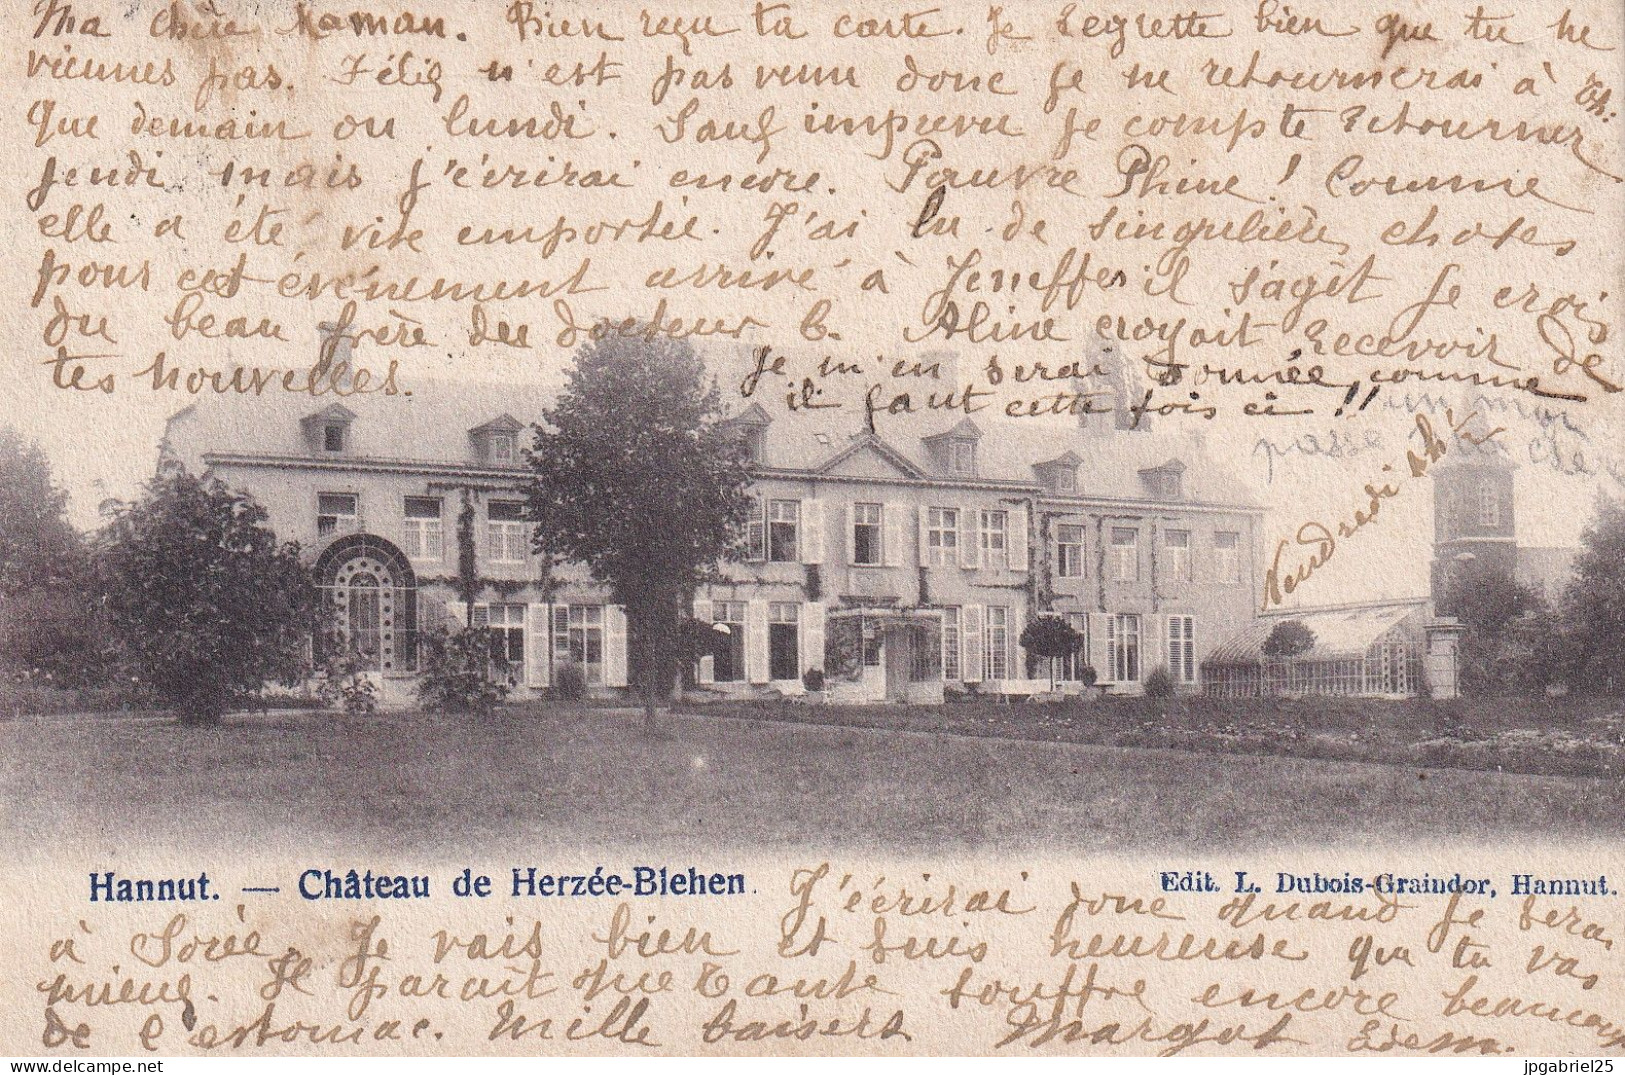 Ma chère Maman. Bien reçu ta carte. Je regrette bien que tu ne
viennes pas. Félix n'est pas venu donc je ne retournerai à Th.
que demain ou lundi. Sauf imprévu je compte retourner
jeudi mais j'écrirai encore. Pauvre Phine! Comme
elle a été vite emportée. J'ai lu de singulières choses
pour cet événement arrivé à Jeneffe il s'agit je crois
du beau frère du docteur b. Aline croyait recevoir de
tes nouvelles.
Je m'en serai donnée, comme
il faut cette fois ci!!
passé
Vendredi
Hannut. — Château de Herzée-Blehen.
Edit. L. Dubois-Graindor, Hannut.
J'écrirai donc quand je serai
à Je vais bien et suis heureuse que tu vas
mieux. Il paraît que Tante souffre encore beaucoup
de l'estomac. Mille baisers Margot
jpgabriel25